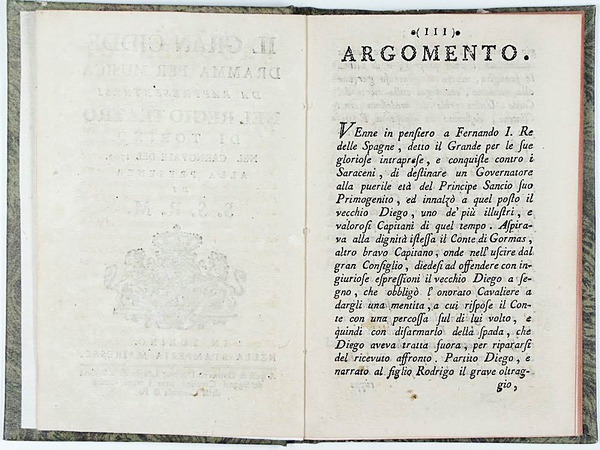 •(III)•
ARGOMENTO.
VEnne in penſiero a Fernando I. Re
delle Spagne, detto il Grande per le ſue
glorioſe intrapreſe, e conquiſte contro i
Saraceni, di deſtinare un Governatore
alla puerile età del Principe Sancio ſuo
Primogenito, ed innalzò a quel poſto il
vecchio Diego, uno de' più illuſtri, e
valoroſi Capitani di quel tempo. Aſpira-
va alla dignità iſteſſa il Conte di Gormas,
altro bravo Capitano, onde nell'uſcire dal
gran Conſiglio, diedeſi ad offendere con in-
giurioſe eſpreſſioni il vecchio Diego a ſe-
gno, che obbligò l'onorato Cavaliere a
dargli una mentita, a cui riſpoſe il Con-
te con una percoſſa ſul di lui volto, e
quindi con diſarmarlo della ſpada, che
Diego aveva tratta fuora, per ripararſi
del ricevuto affronto. Partito Diego, e
narrato al figlio Rodrigo il grave oltrag-
gio,